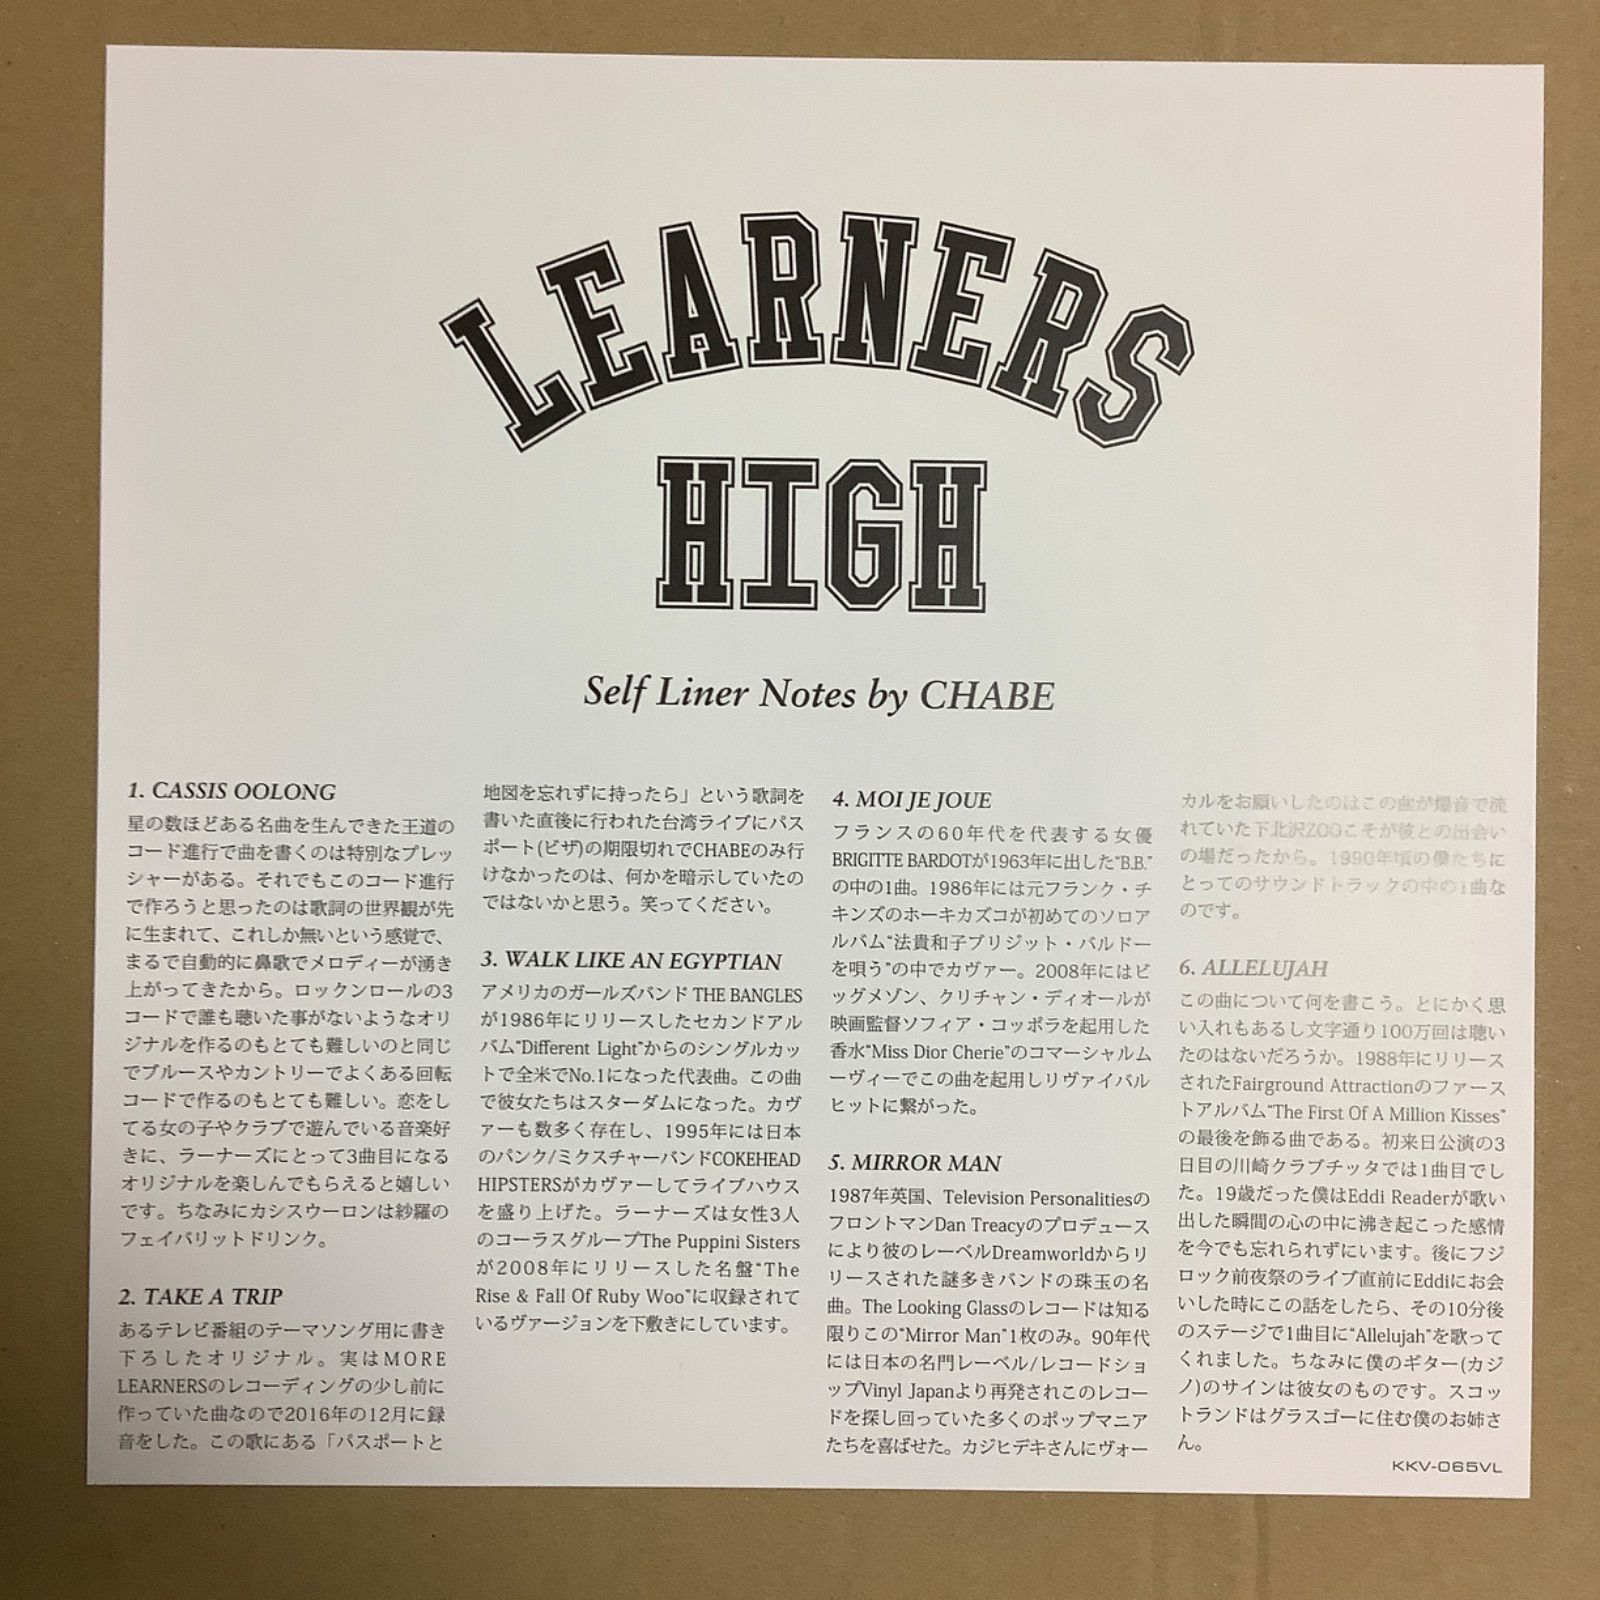 LEARNERS
HIGH
Self Liner Notes by CHABE
1. CASSIS OOLONG
星の数ほどある名曲を生んできた王道の
コード進行で曲を書くのは特別なプレッ
シャーがある。それでもこのコード進行
で作ろうと思ったのは歌詞の世界観が先
に生まれて、これしか無いという感覚で、
まるで自動的に鼻歌でメロディーが湧き
上がってきたから。ロックンロールの3
コードで誰も聴いた事がないようなオリ
ジナルを作るのもとても難しいのと同じ
でブルースやカントリーでよくある回転
コードで作るのもとても難しい。恋をし
てる女の子やクラブで遊んでいる音楽好
きに、ラーナーズにとって3曲目になる
オリジナルを楽しんでもらえると嬉しい
です。ちなみにカシスウーロンは紗羅の
フェイバリットドリンク。
2. TAKE A TRIP
あるテレビ番組のテーマソング用に書き
下ろしたオリジナル。実はMORE
LEARNERSのレコーディングの少し前に
作っていた曲なので2016年の12月に録
音をした。この歌にある「パスポートと
地図を忘れずに持ったら」という歌詞を
書いた直後に行われた台湾ライブにパス
ポート(ビザ)の期限切れでCHABEのみ行
けなかったのは、何かを暗示していたの
ではないかと思う。笑ってください。
3. WALK LIKE AN EGYPTIAN
アメリカのガールズバンド THE BANGLES
が1986年にリリースしたセカンドアル
バム“Different Light”からのシングルカッ
トで全米でNo.1になった代表曲。この曲
で彼女たちはスターダムになった。カヴ
ァーも数多く存在し、1995年には日本
のパンク/ミクスチャーバンドCOKEHEAD
HIPSTERSがカヴァーしてライブハウス
を盛り上げた。ラーナーズは女性3人
のコーラスグループThe Puppini Sisters
が2008年にリリースした名盤“The
Rise & Fall Of Ruby Woo”に収録されて
いるヴァージョンを下敷きにしています。
4. MOI JE JOUE
フランスの60年代を代表する女優
BRIGITTE BARDOTが1963年に出した“B.B.”
の中の1曲。1986年には元フランク・チ
キンズのホーキカズコが初めてのソロア
ルバム“法貴和子ブリジット・バルドー
を唄う”の中でカヴァー。2008年にはビ
ッグメゾン、クリチャン・ディオールが
映画監督ソフィア・コッポラを起用した
香水“Miss Dior Cherie”のコマーシャルム
ーヴィーでこの曲を起用しリヴァイバル
ヒットに繋がった。
5. MIRROR MAN
1987年英国、Television Personalitiesの
フロントマンDan Treacyのプロデュース
により彼のレーベルDreamworldからリ
リースされた謎多きバンドの珠玉の名
曲。The Looking Glassのレコードは知る
限りこの“Mirror Man”1枚のみ。90年代
には日本の名門レーベル/レコードショ
ップVinyl Japanより再発されこのレコー
ドを探し回っていた多くのポップマニア
たちを喜ばせた。カジヒデキさんにヴォー
カルをお願いしたのはこの曲が爆音で流
れていた下北沢ZOOこそが彼との出会い
の場だったから。1990年頃の僕たちに
とってのサウンドトラックの中の1曲な
のです。
6. ALLELUJAH
この曲について何を書こう。とにかく思
い入れもあるし文字通り100万回は聴い
たのはないだろうか。1988年にリリース
されたFairground Attractionのファース
トアルバム“The First Of A Million Kisses”
の最後を飾る曲である。初来日公演の3
日目の川崎クラブチッタでは1曲目でし
た。19歳だった僕はEddi Readerが歌い
出した瞬間の心の中に沸き起こった感情
を今でも忘れられずにいます。後にフジ
ロック前夜祭のライブ直前にEddiにお会
いした時にこの話をしたら、その10分後
のステージで1曲目に“Allelujah”を歌って
くれました。ちなみに僕のギター(カジ
ノ)のサインは彼女のものです。スコッ
トランドはグラスゴーに住む僕のお姉さ
ん。
KKV-065VL